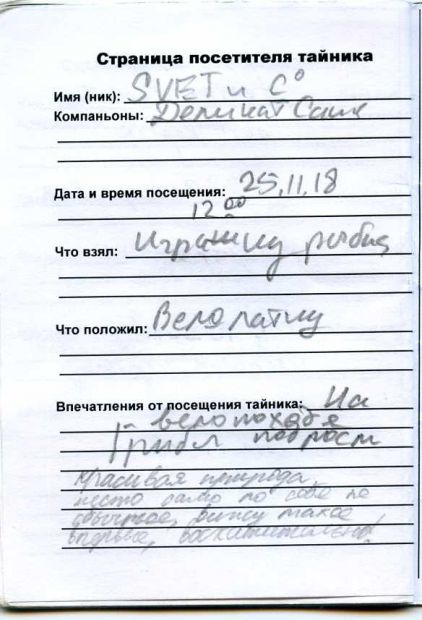 Страница посетителя тайника
Имя (ник): SVET и С°
Компаньоны: Деликат Саня
Дата и время посещения: 25.11.18
12 00
Что взял: Игрушку рыбку
Что положил: Велолатку
Впечатления от посещения тайника: На
велопоходе
Грибы
Красивая природа,
место само по себе не
обычное, вижу такое
впервые, восхитительно!